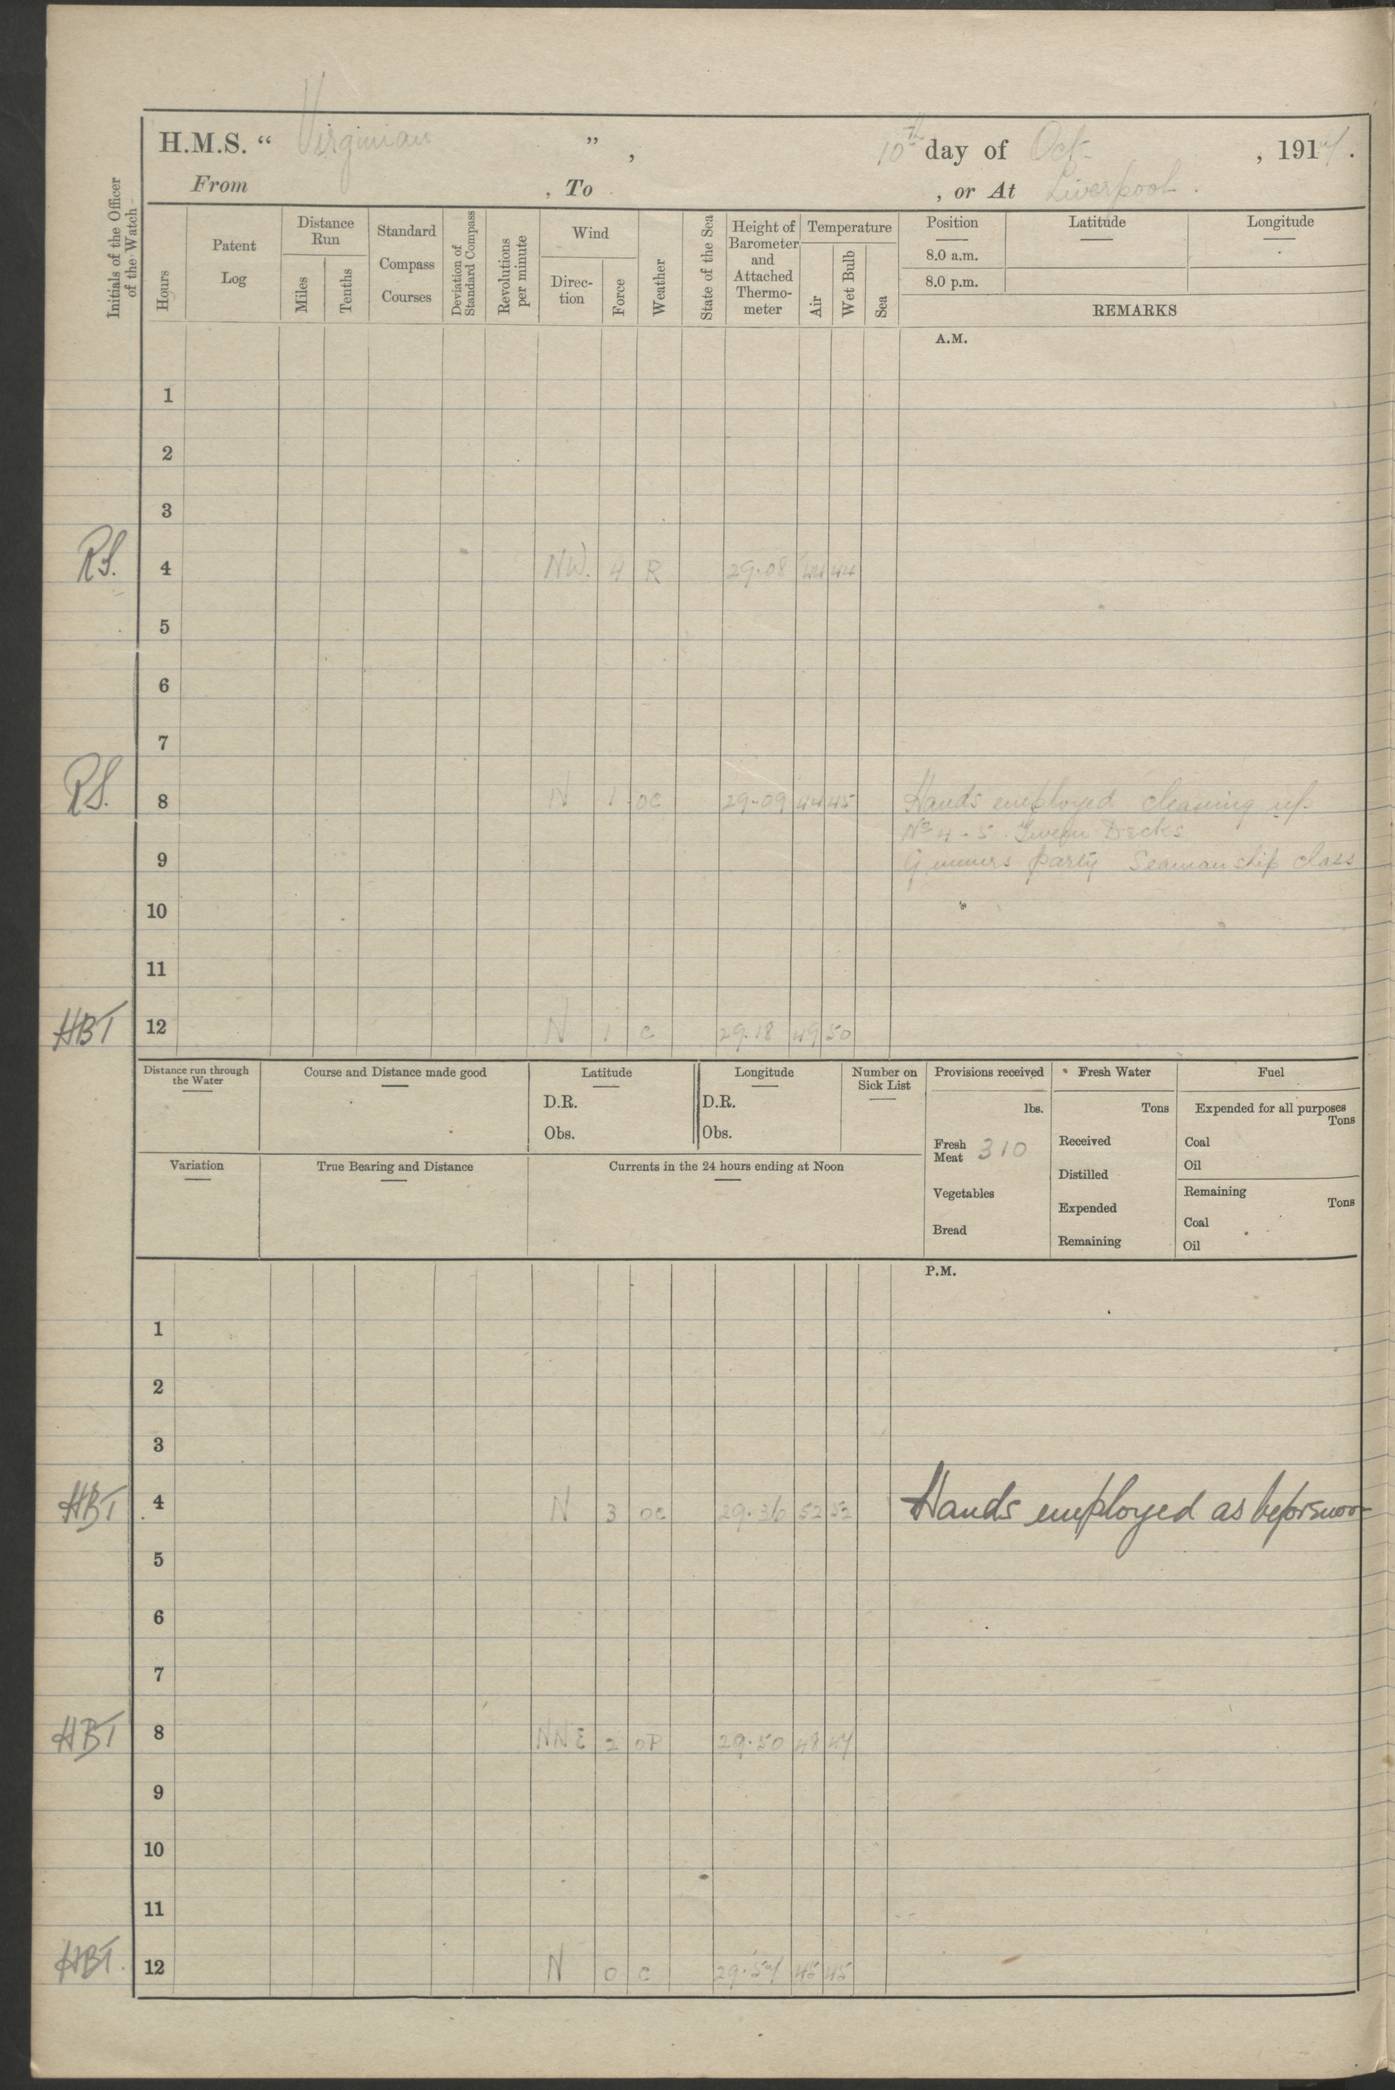 H.M.S. “ Virginian ” , 10th day of Oct , 191 .
From , To , or At Liverpool .
Initials of the Officer of the Watch
Hours
Patent Log
Distance Run
Miles
Tenths
Standard Compass Courses
Deviation of Standard Compass
Revolutions per minute
Wind
Direc- tion
Force
Weather
State of the Sea
Height of Barometer and Attached Thermo- meter
Temperature
Air
Wet Bulb
Sea
Position
Latitude
Longitude
8.0 a.m.
8.0 p.m.
REMARKS
A.M.
1
2
3
RS. 4 NW. 4 R 29.08 44 44
5
6
7
RS. 8 N 1 oc 29.09 44 45 Hands employed cleaning up
No 4 - 5 Tween Decks
9 Gunners party Seamanship class
10
11
HBT 12 N 1 c 29.18 49 50
Distance run through the Water
Course and Distance made good
Latitude
D.R.
Obs.
Longitude
D.R.
Obs.
Number on Sick List
Provisions received
lbs.
Fresh Meat 310
Vegetables
Bread
Fresh Water
Tons
Received
Distilled
Expended
Remaining
Fuel
Expended for all purposes
Tons
Coal
Oil
Remaining
Tons
Coal
Oil
Variation
True Bearing and Distance
Currents in the 24 hours ending at Noon
P.M.
1
2
3
HBT 4 N 3 oc 29.36 52 52 Hands employed as
5
6
7
HBT 8 NNE 2 oP 29.50 48 47
9
10
11
HBT. 12 N 0 c 45 45